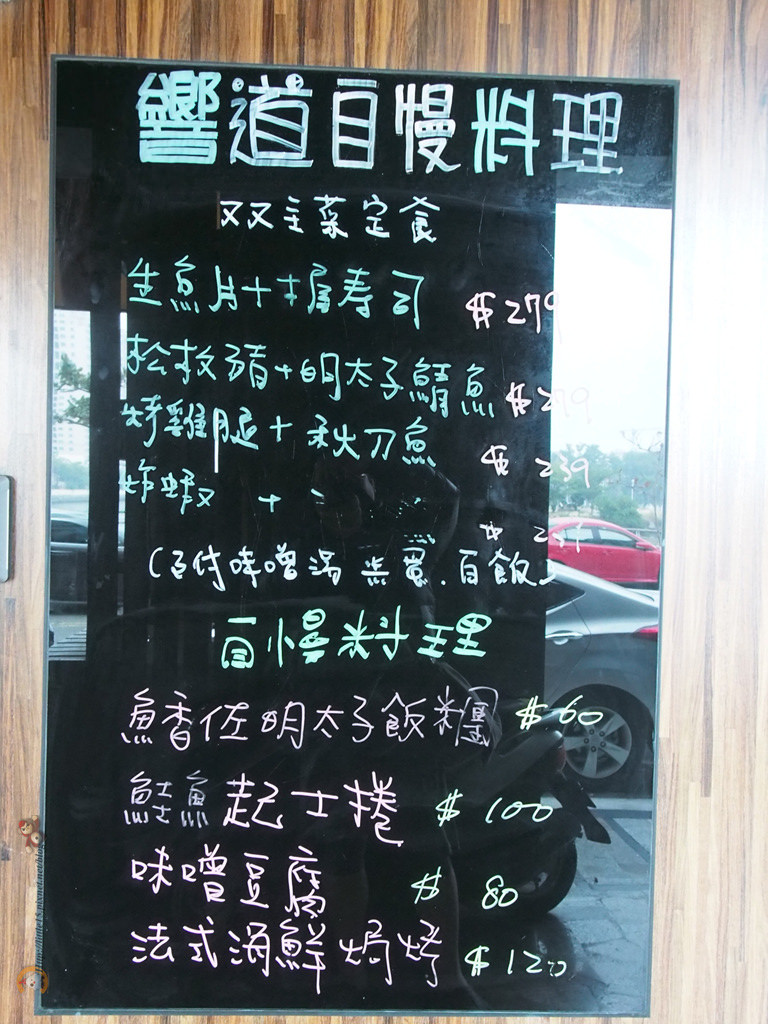 響道自慢料理
双主菜定食
生魚片+握壽司 $279
松板豬+明太子鯖魚 $279
烤雞腿+秋刀魚 $239
炸蝦 +
(百付味噌湯 蒸蛋.白飯)
自慢料理
魚香佐明太子飯糰 $60
鮭魚起士捲 $100
味噌豆腐 $80
法式海鮮焗烤 $120